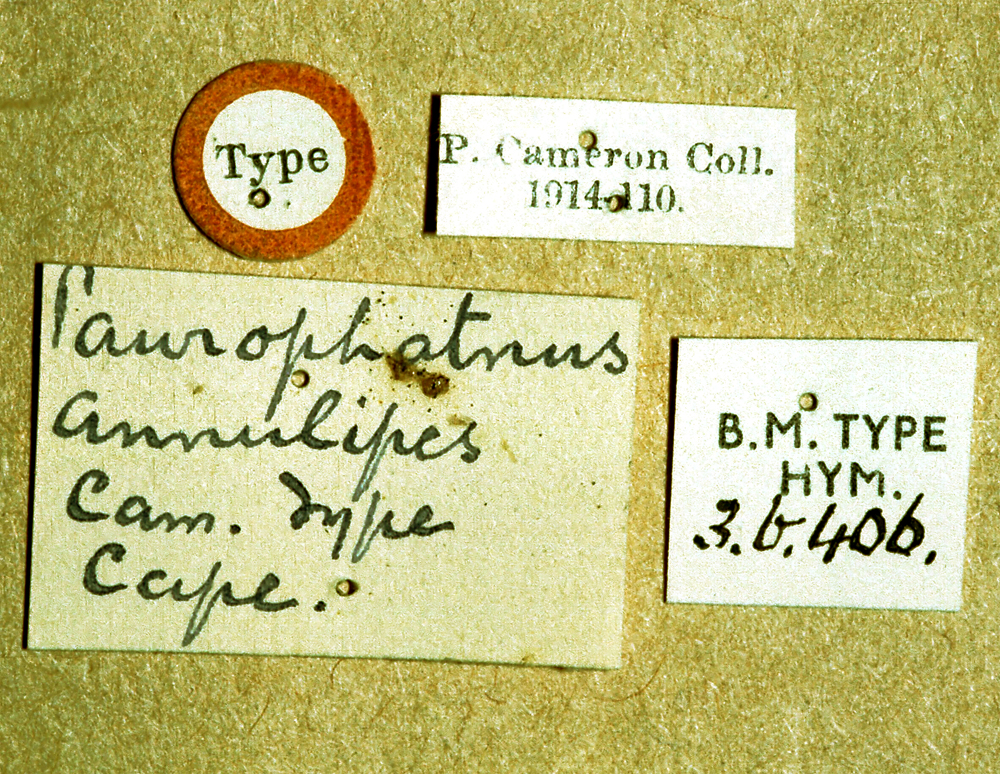 Type
P. Cameron Coll.
1914-110.
Paurophatnus
annulipes
Cam. Type
Cape.
B.M. TYPE
HYM.
3.b.406.